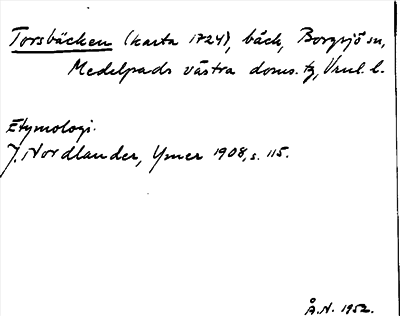 Torsbäcken (karta 1724), bäck, Borgsjö sn,
Medelpads västra doms. tg, Vnrl. l.
Etymologi.
J. Nordlander, Ymer 1908, s. 115.
Å.N. 1952.